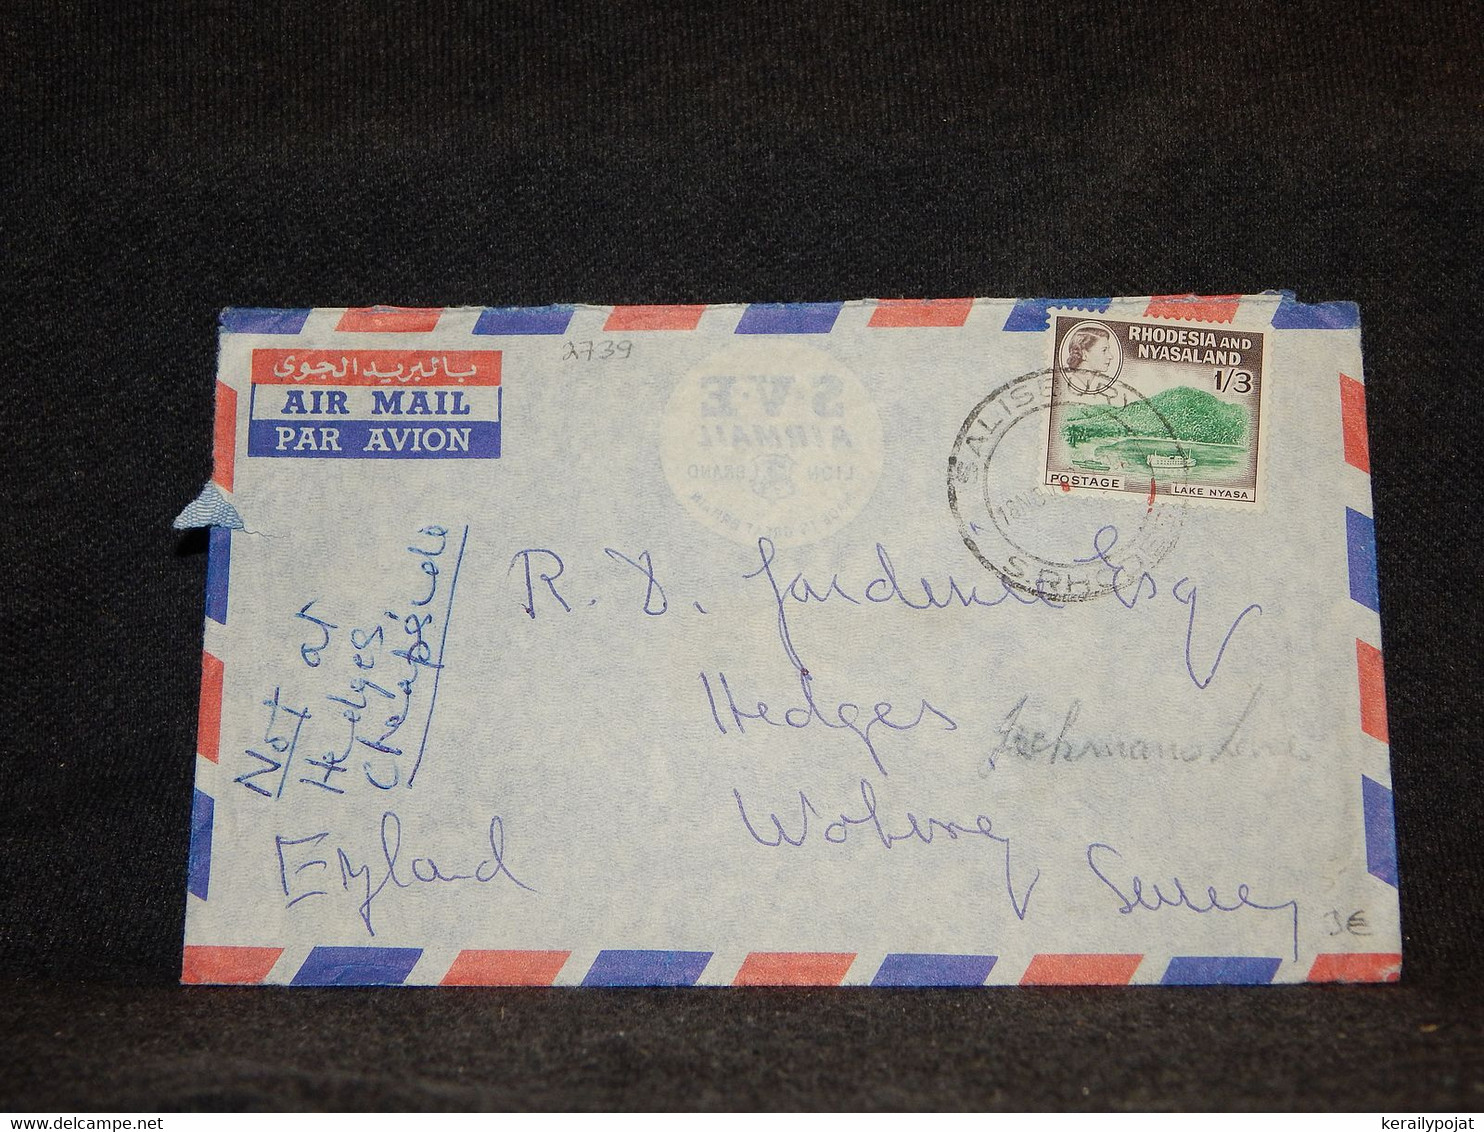 2739
بالبريد الجوى
AIR MAIL
PAR AVION
S·V·E
AIRMAIL
LION BRAND
RHODESIA AND
NYASALAND
1/3
POSTAGE
LAKE NYASA
SALISBURY
18 NOV
S. RHODESIA
R. D. Jardine Esq
Hedges
Woking
Surrey
England
Not at
Hedges,
3€
kerailypojat